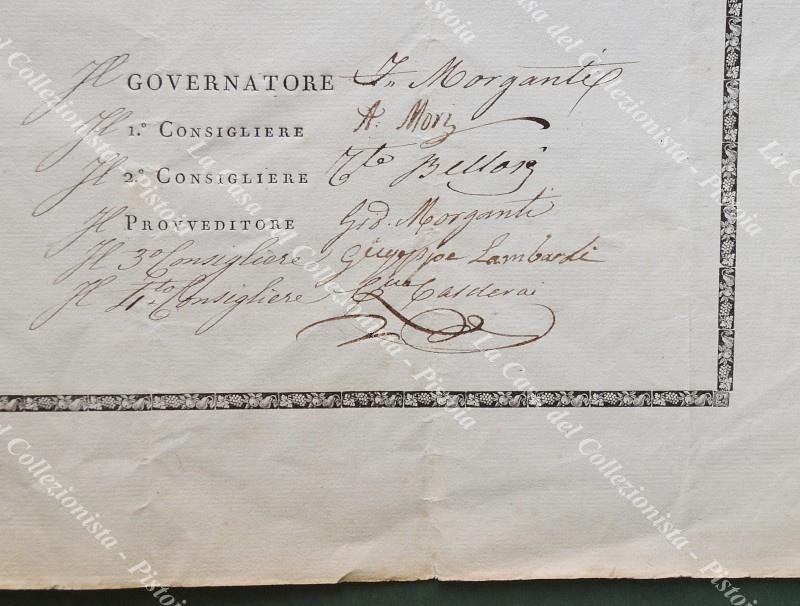 Il GOVERNATORE Fn Morganti
Il 1.º CONSIGLIERE A. Mori
Il 2.º CONSIGLIERE Bellosi
Il PROVVEDITORE Grd. Morganti
Il 3º Consigliere Giuseppe Lambardi
Il 4to Consigliere Calderai
La Casa del Collezionista - Pistoia